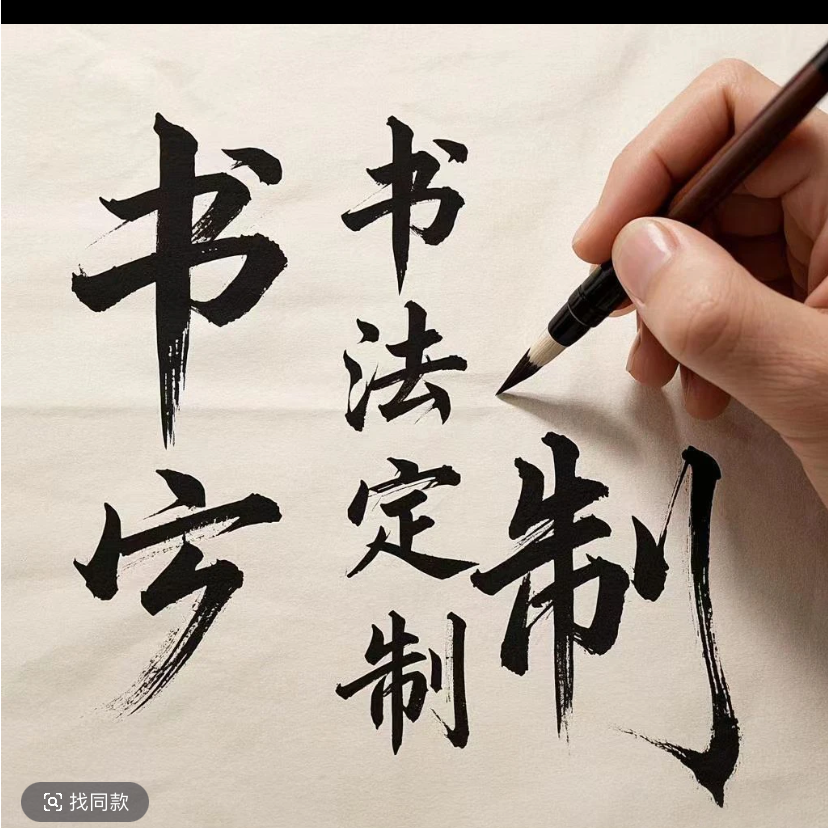 书
书法定制
制
找同款